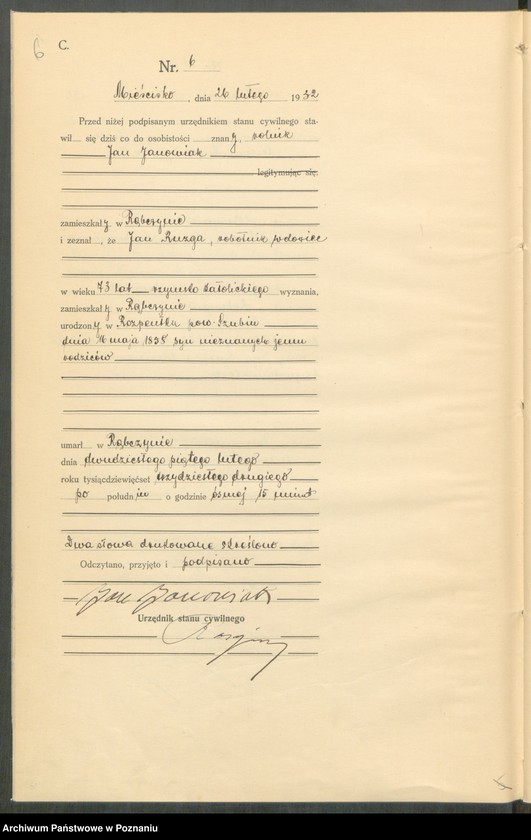 6 C.
Nr. 6
Mieścisko, dnia 26 lutego 1932
Przed niżej podpisanym urzędnikiem stanu cywilnego sta-
wil się dziś co do osobistości znany, rolnik
Jan Janowiak
legitymując się
zamieszkały w Rąbczynie
i zeznał, że Jan Ruzga, robotnik wdowiec
w wieku 73 lat rzymsko katolickiego wyznania,
zamieszkały w Rąbczynie
urodzony w pow. Szubin
dnia 16 maja syn nieznanych jemu
rodziców
umarł w Rąbczynie
dnia dwudziestego piątego lutego
roku tysiącdziewięćset trzydziestego drugiego
po południu o godzinie ósmej 15 minut
Dwa słowa drukowane skreślono
Odczytano, przyjęto i podpisano
Jan Janowiak
Urzędnik stanu cywilnego
Archiwum Państwowe w Poznaniu